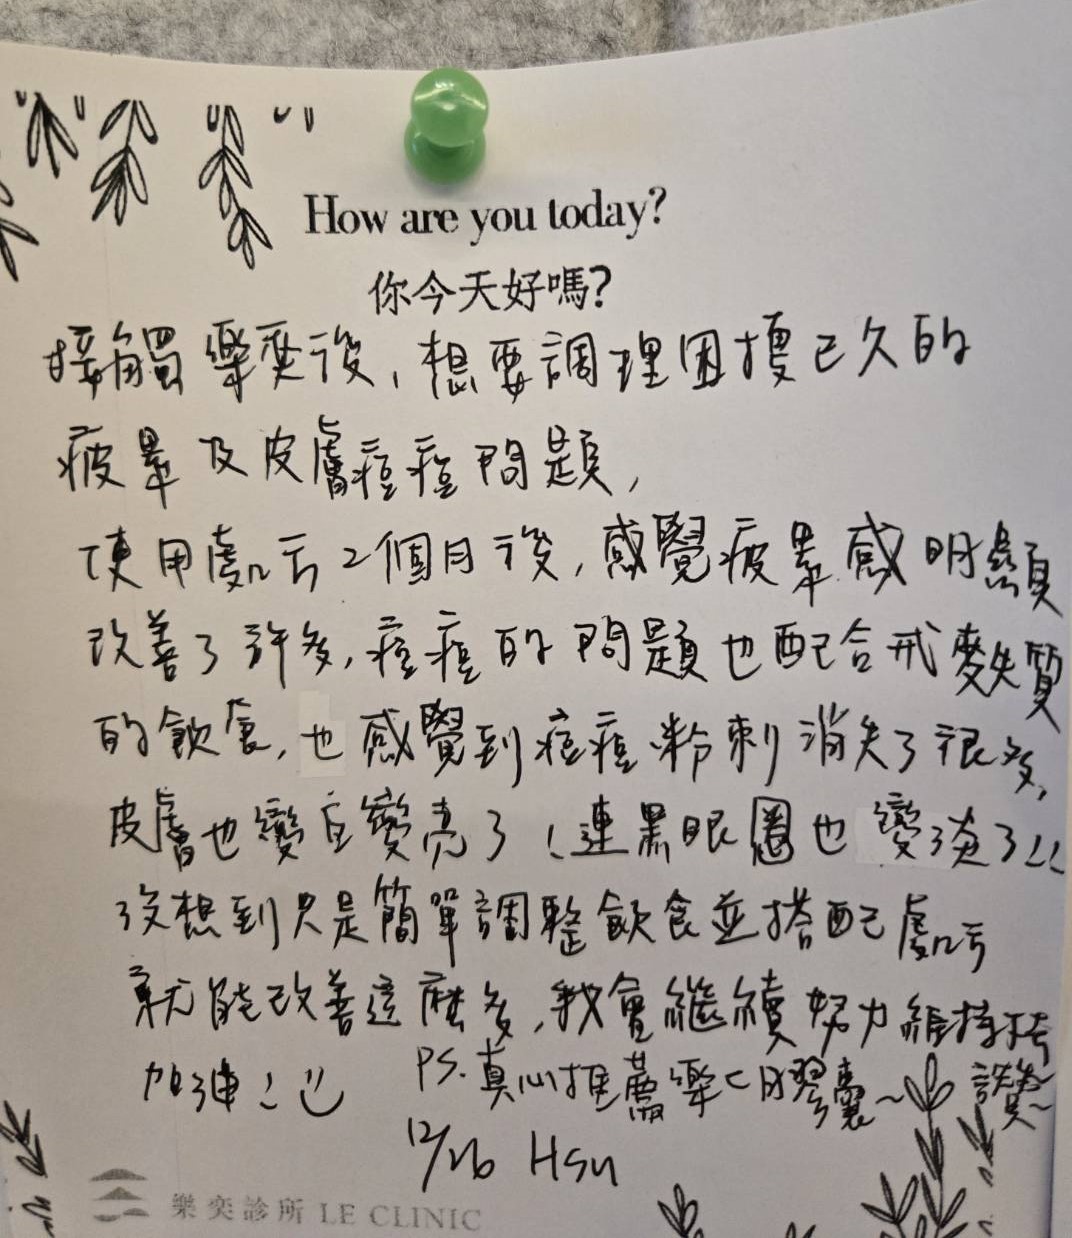 How are you today?
你今天好嗎?
接觸樂奕後,想要調理困擾已久的
疲累及皮膚痘痘問題,
使用處方2個月後,感覺疲累感明顯
改善了許多,痘痘的問題也配合戒麩質
的飲食,也感覺到痘痘粉刺消失了很多,
皮膚也變白變亮了!連黑眼圈也變淡了!!
沒想到只是簡單調整飲食並搭配處方
就能改善這麼多,我會繼續努力維持
加油!
PS.真心推薦樂C膠囊~讚~
12/26 Hsu
樂奕診所 LE CLINIC